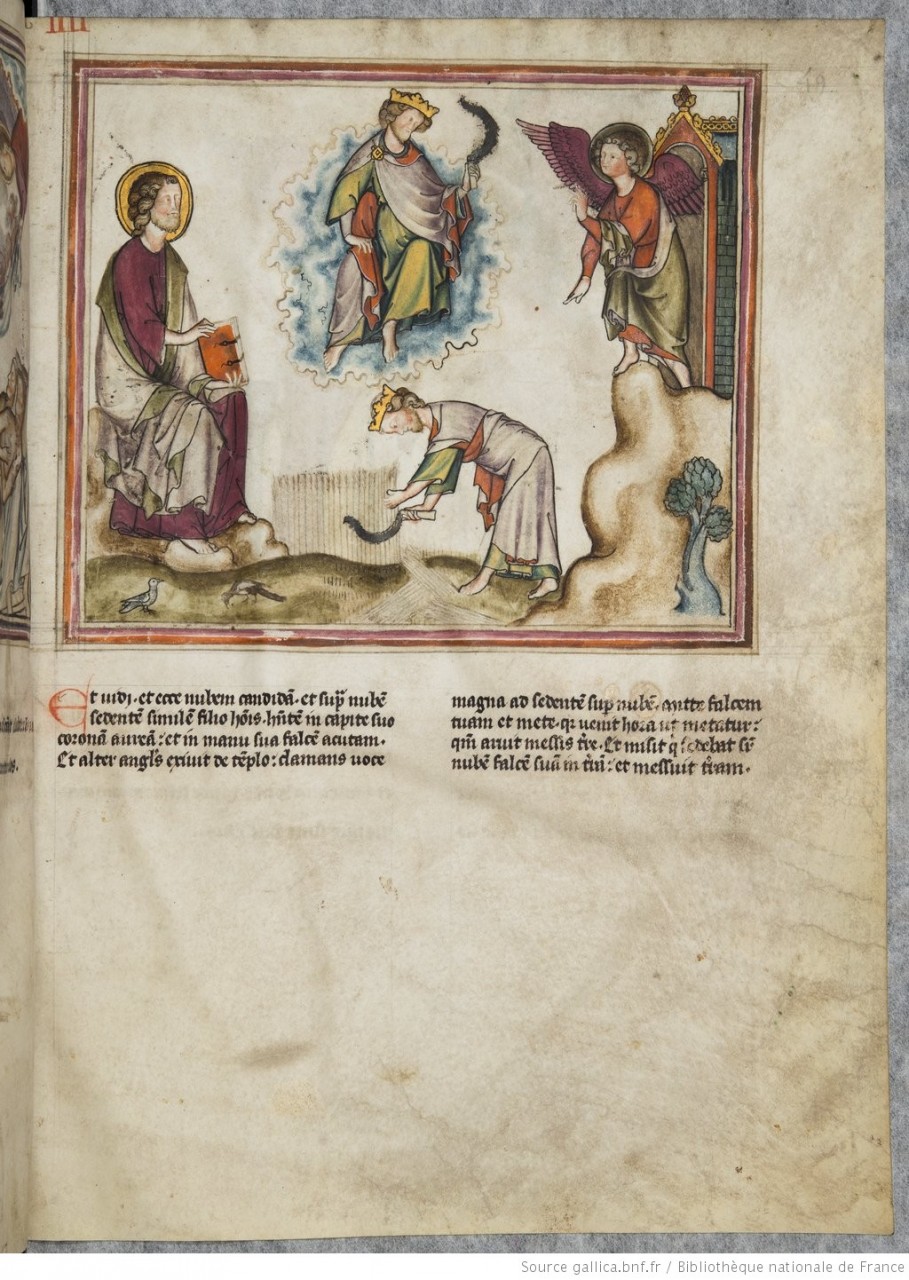 IIII
Et uidi. et ecce nubem candidā. et sup nubē
sedentē similē filio hōis. hn̄tē in capite suo
coronā aureā: et in manu sua falcē acutam.
Et alter angl's exiuit de tēplo: clamans uoce
magna ad sedentē sup nubē. mitte falcem
tuam et mete. qr uenit hora ut metatur:
qm̄ aruit messis tr̄e. Et misit q sedebat sr̄
nubē falcē suā in trā: et messuit tr̄am.
Source gallica.bnf.fr / Bibliothèque nationale de France